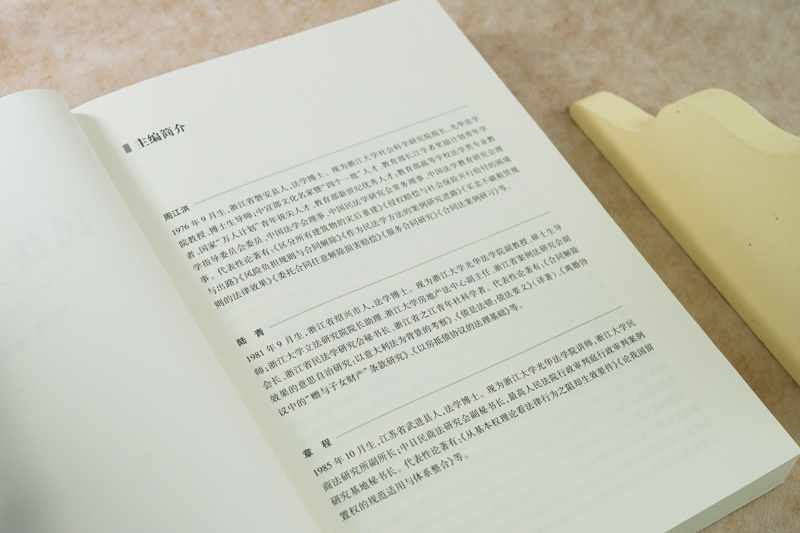 主编简介
周江洪
1976 年 9 月生，浙江省磐安县人，法学博士。现为浙江大学社会科学研究院院长，光华法学
院教授、博士生导师；中宣部文化名家暨“四个一批”人才、教育部长江学者奖励计划青年学
者、国家“万人计划”青年拔尖人才、教育部新世纪优秀人才；教育部高等学校法学类专业教
学指导委员会委员、中国法学会理事、中国民法学研究会常务理事、中国法学教育研究会理
事。代表性论著有：《区分所有建筑物的灾后重建》《侵权赔偿与社会保险并行给付的困境
与出路》《风险负担规则与合同解除》《作为民法学方法的案例研究进路》《买卖不破租赁规
则的法律效果》《委托合同任意解除损害赔偿》《服务合同研究》《合同法案例研习》等。
陆 青
1981 年 9 月生，浙江省绍兴市人，法学博士。现为浙江大学光华法学院副教授、硕士生导
师；浙江大学立法研究院院长助理、浙江大学房地产法中心副主任、浙江省案例法研究会副
会长、浙江省民法学研究会秘书长、浙江省之江青年社科学者。代表性论著有：《合同解除
效果的意思自治研究：以意大利法为背景的考察》、《债是法锁：债法要义》（译著）、《离婚协
议中的“赠与子女财产”条款研究》、《以房抵债协议的法理基础》等。
章 程
1985 年 10 月生，江苏省武进县人，法学博士。现为浙江大学光华法学院讲师，浙江大学民
商法研究所副所长；中日民商法研究会副秘书长，最高人民法院行政审判庭行政审判案例
研究基地秘书长。代表性论著有：《从基本权理论看法律行为之阻却生效要件》《论我国留
置权的规范适用与体系整合》等。